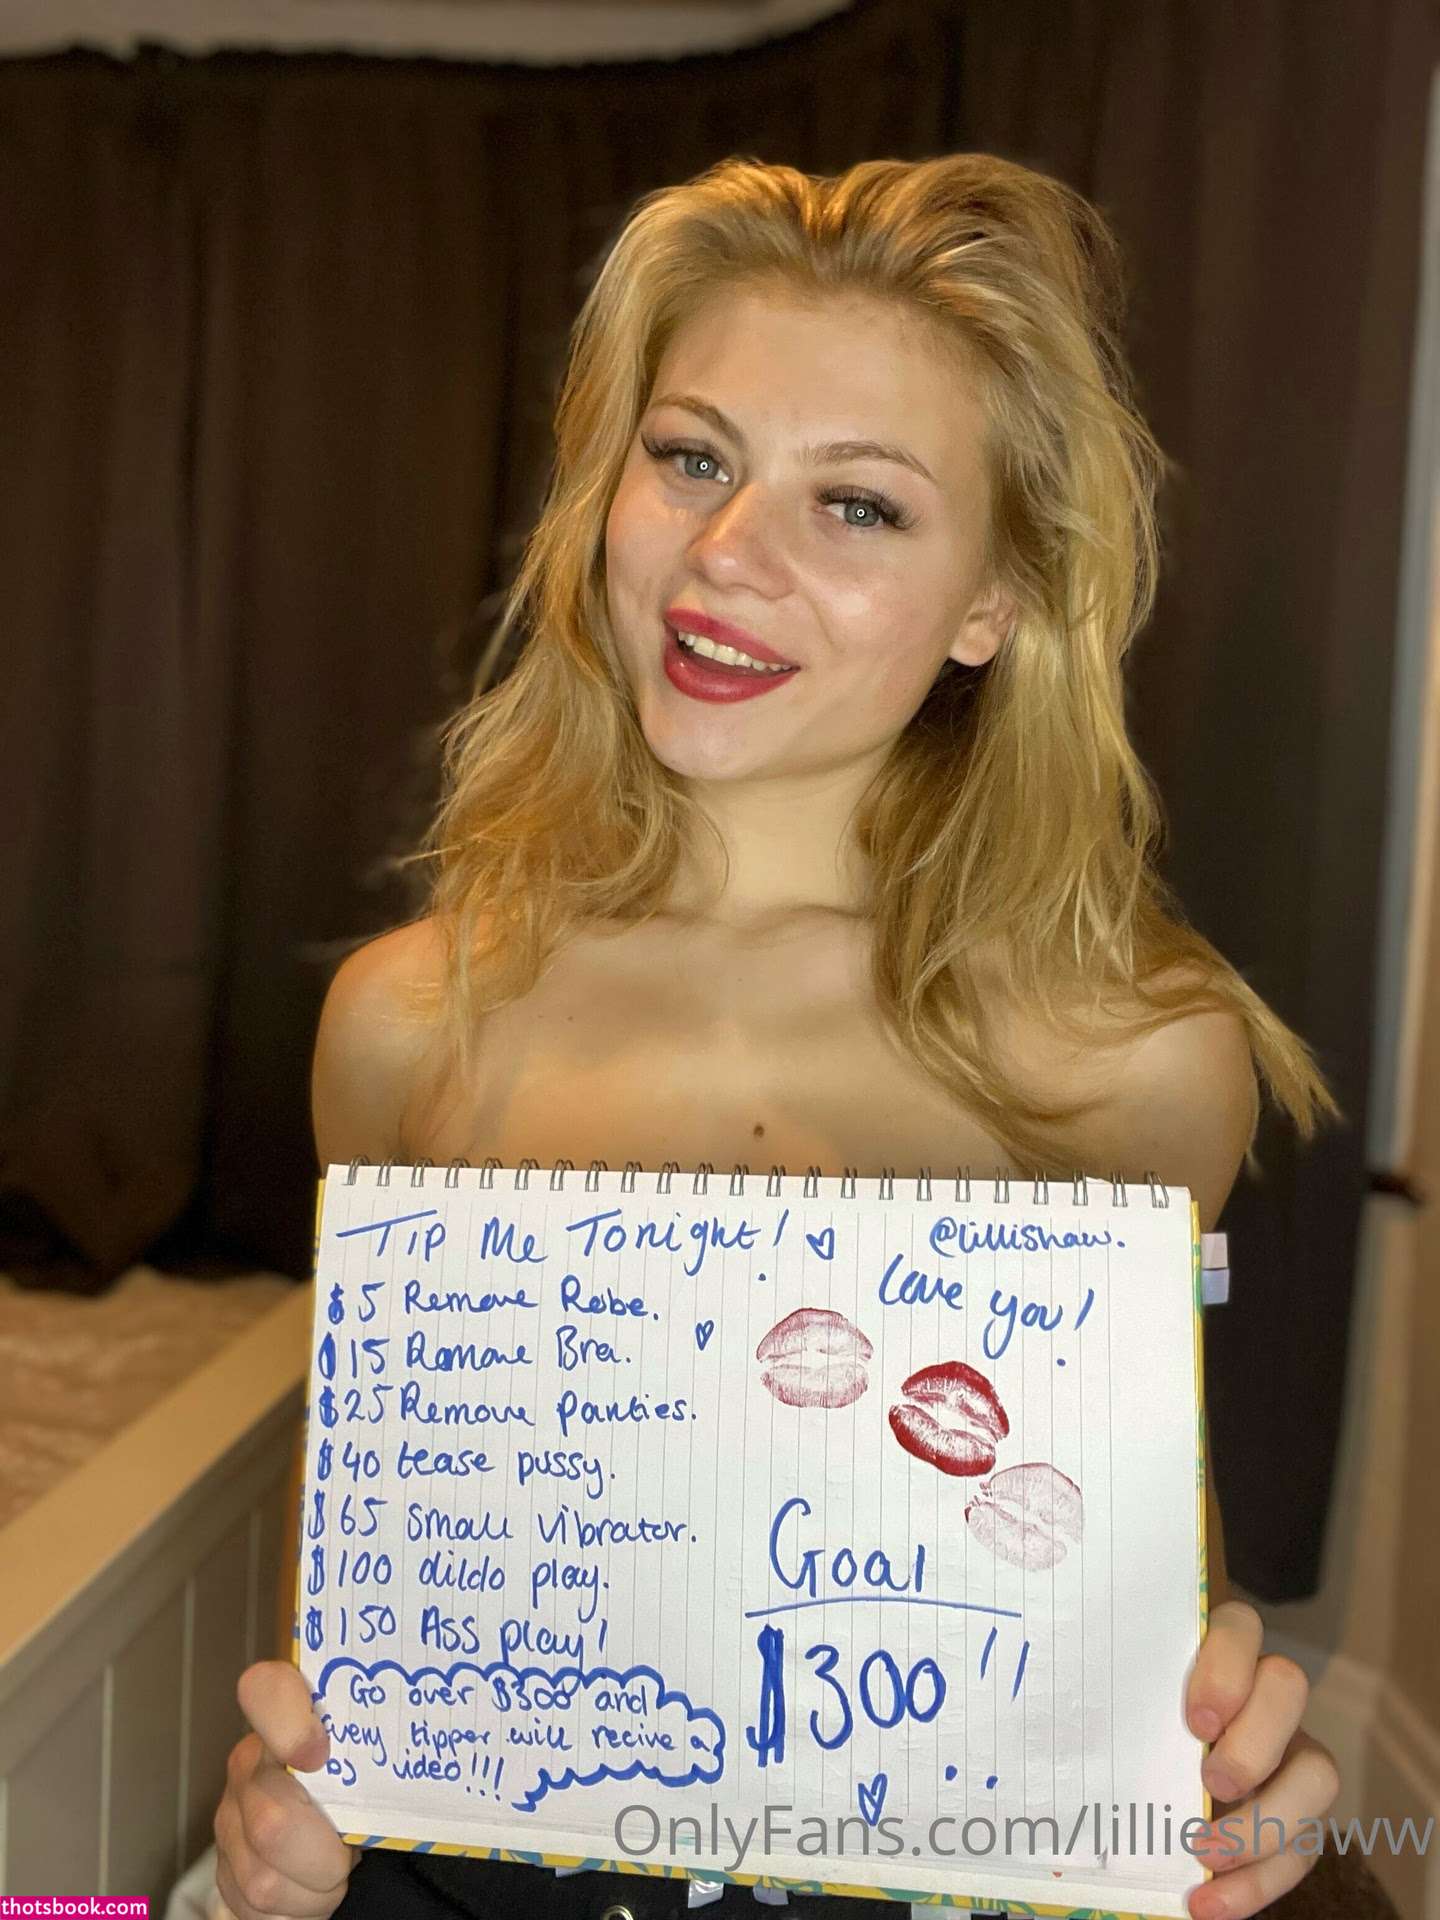 Tip Me Tonight!
@lillishaw.
Love you!
$5 Remove Robe.
$15 Remove Bra.
$25 Remove panties.
$40 tease pussy.
$65 small vibrator.
$100 dildo play.
$150 Ass play!
Goal
$300!!
Go over $300 and
Every tipper will recive a
bj video!!!
OnlyFans.com/lillieshaww
thotsbook.com